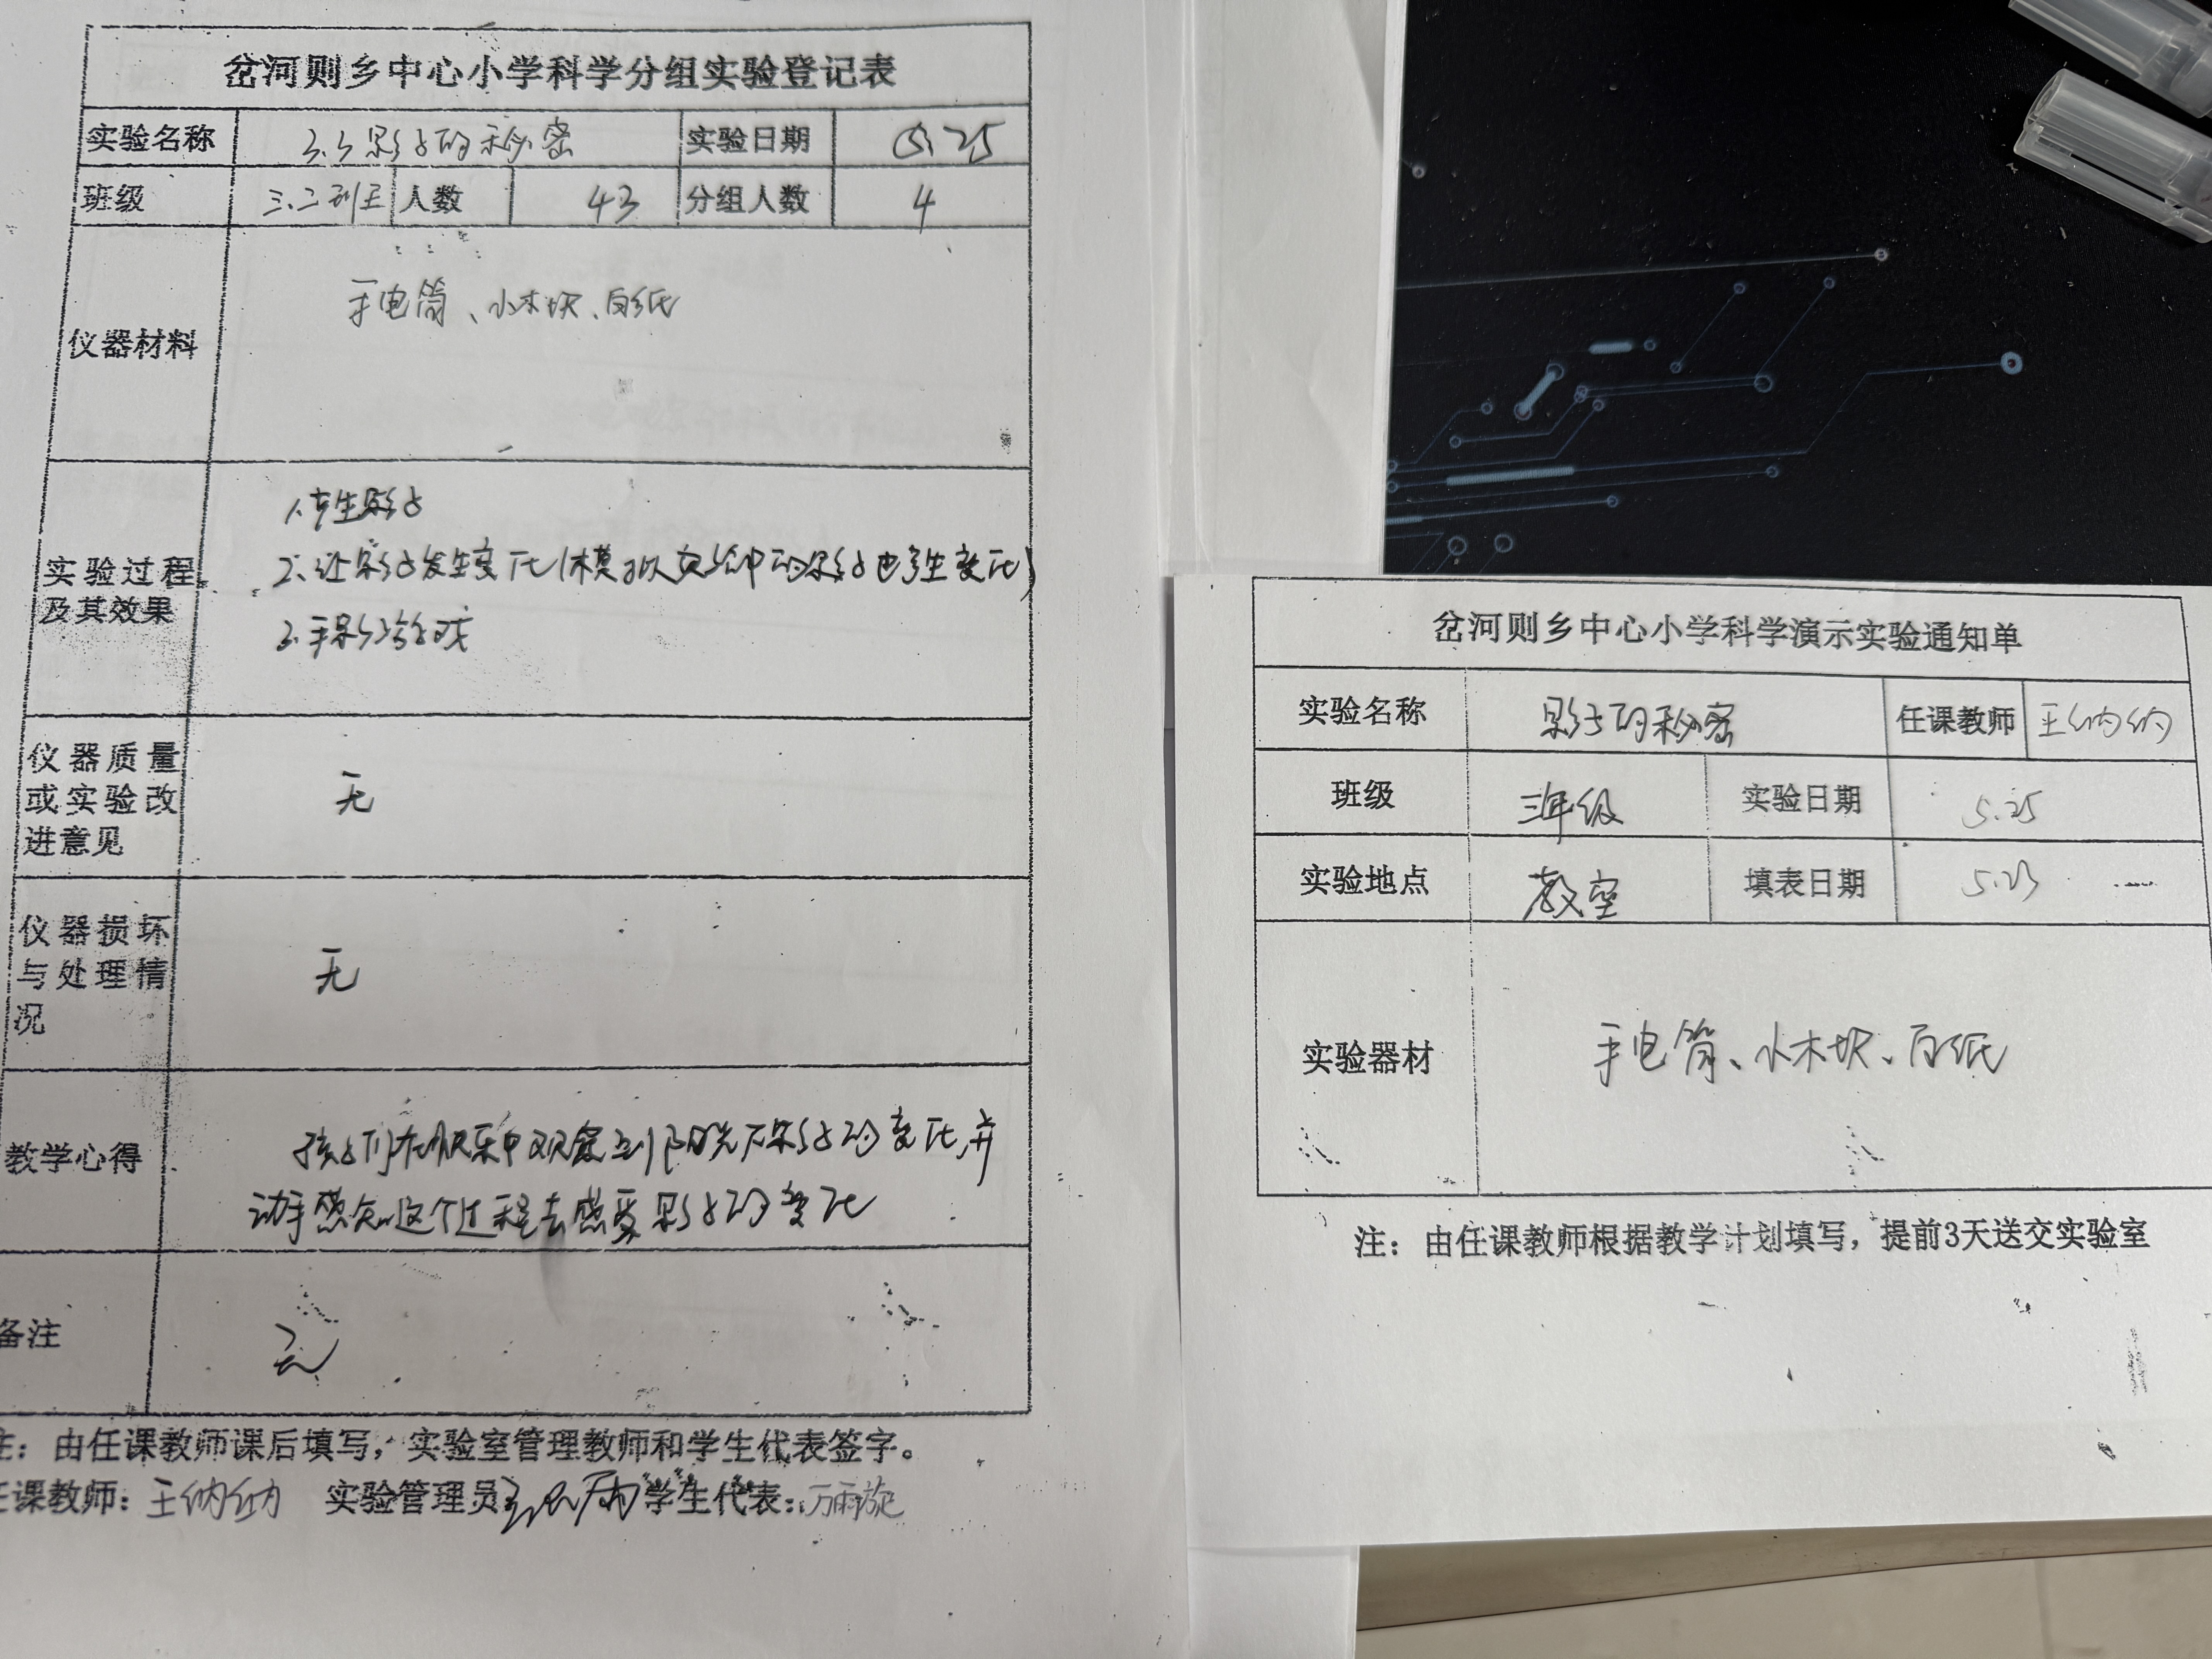 岔河则乡中心小学科学分组实验登记表
实验名称 3.3影子的秘密 实验日期 5.25
班级 三.二班 人数 43 分组人数 4
仪器材料 手电筒、小木块、白纸
实验过程及其效果
1.产生影子
2.让影子发生变化(模拟实验中的影子也发生变化)
3.手影游戏
仪器质量或实验改进意见 无
仪器损坏与处理情况 无
教学心得
孩子们在快乐中观察到阳光下影子的变化,并
动手感知这个过程去感受影子的变化
备注 无
注：由任课教师课后填写，实验室管理教师和学生代表签字。
任课教师：王纳纳 实验管理员 学生代表：万雨旋
岔河则乡中心小学科学演示实验通知单
实验名称 影子的秘密 任课教师 王纳纳
班级 三年级 实验日期 5.25
实验地点 教室 填表日期 5.23
实验器材 手电筒、小木块、白纸
注：由任课教师根据教学计划填写，提前3天送交实验室